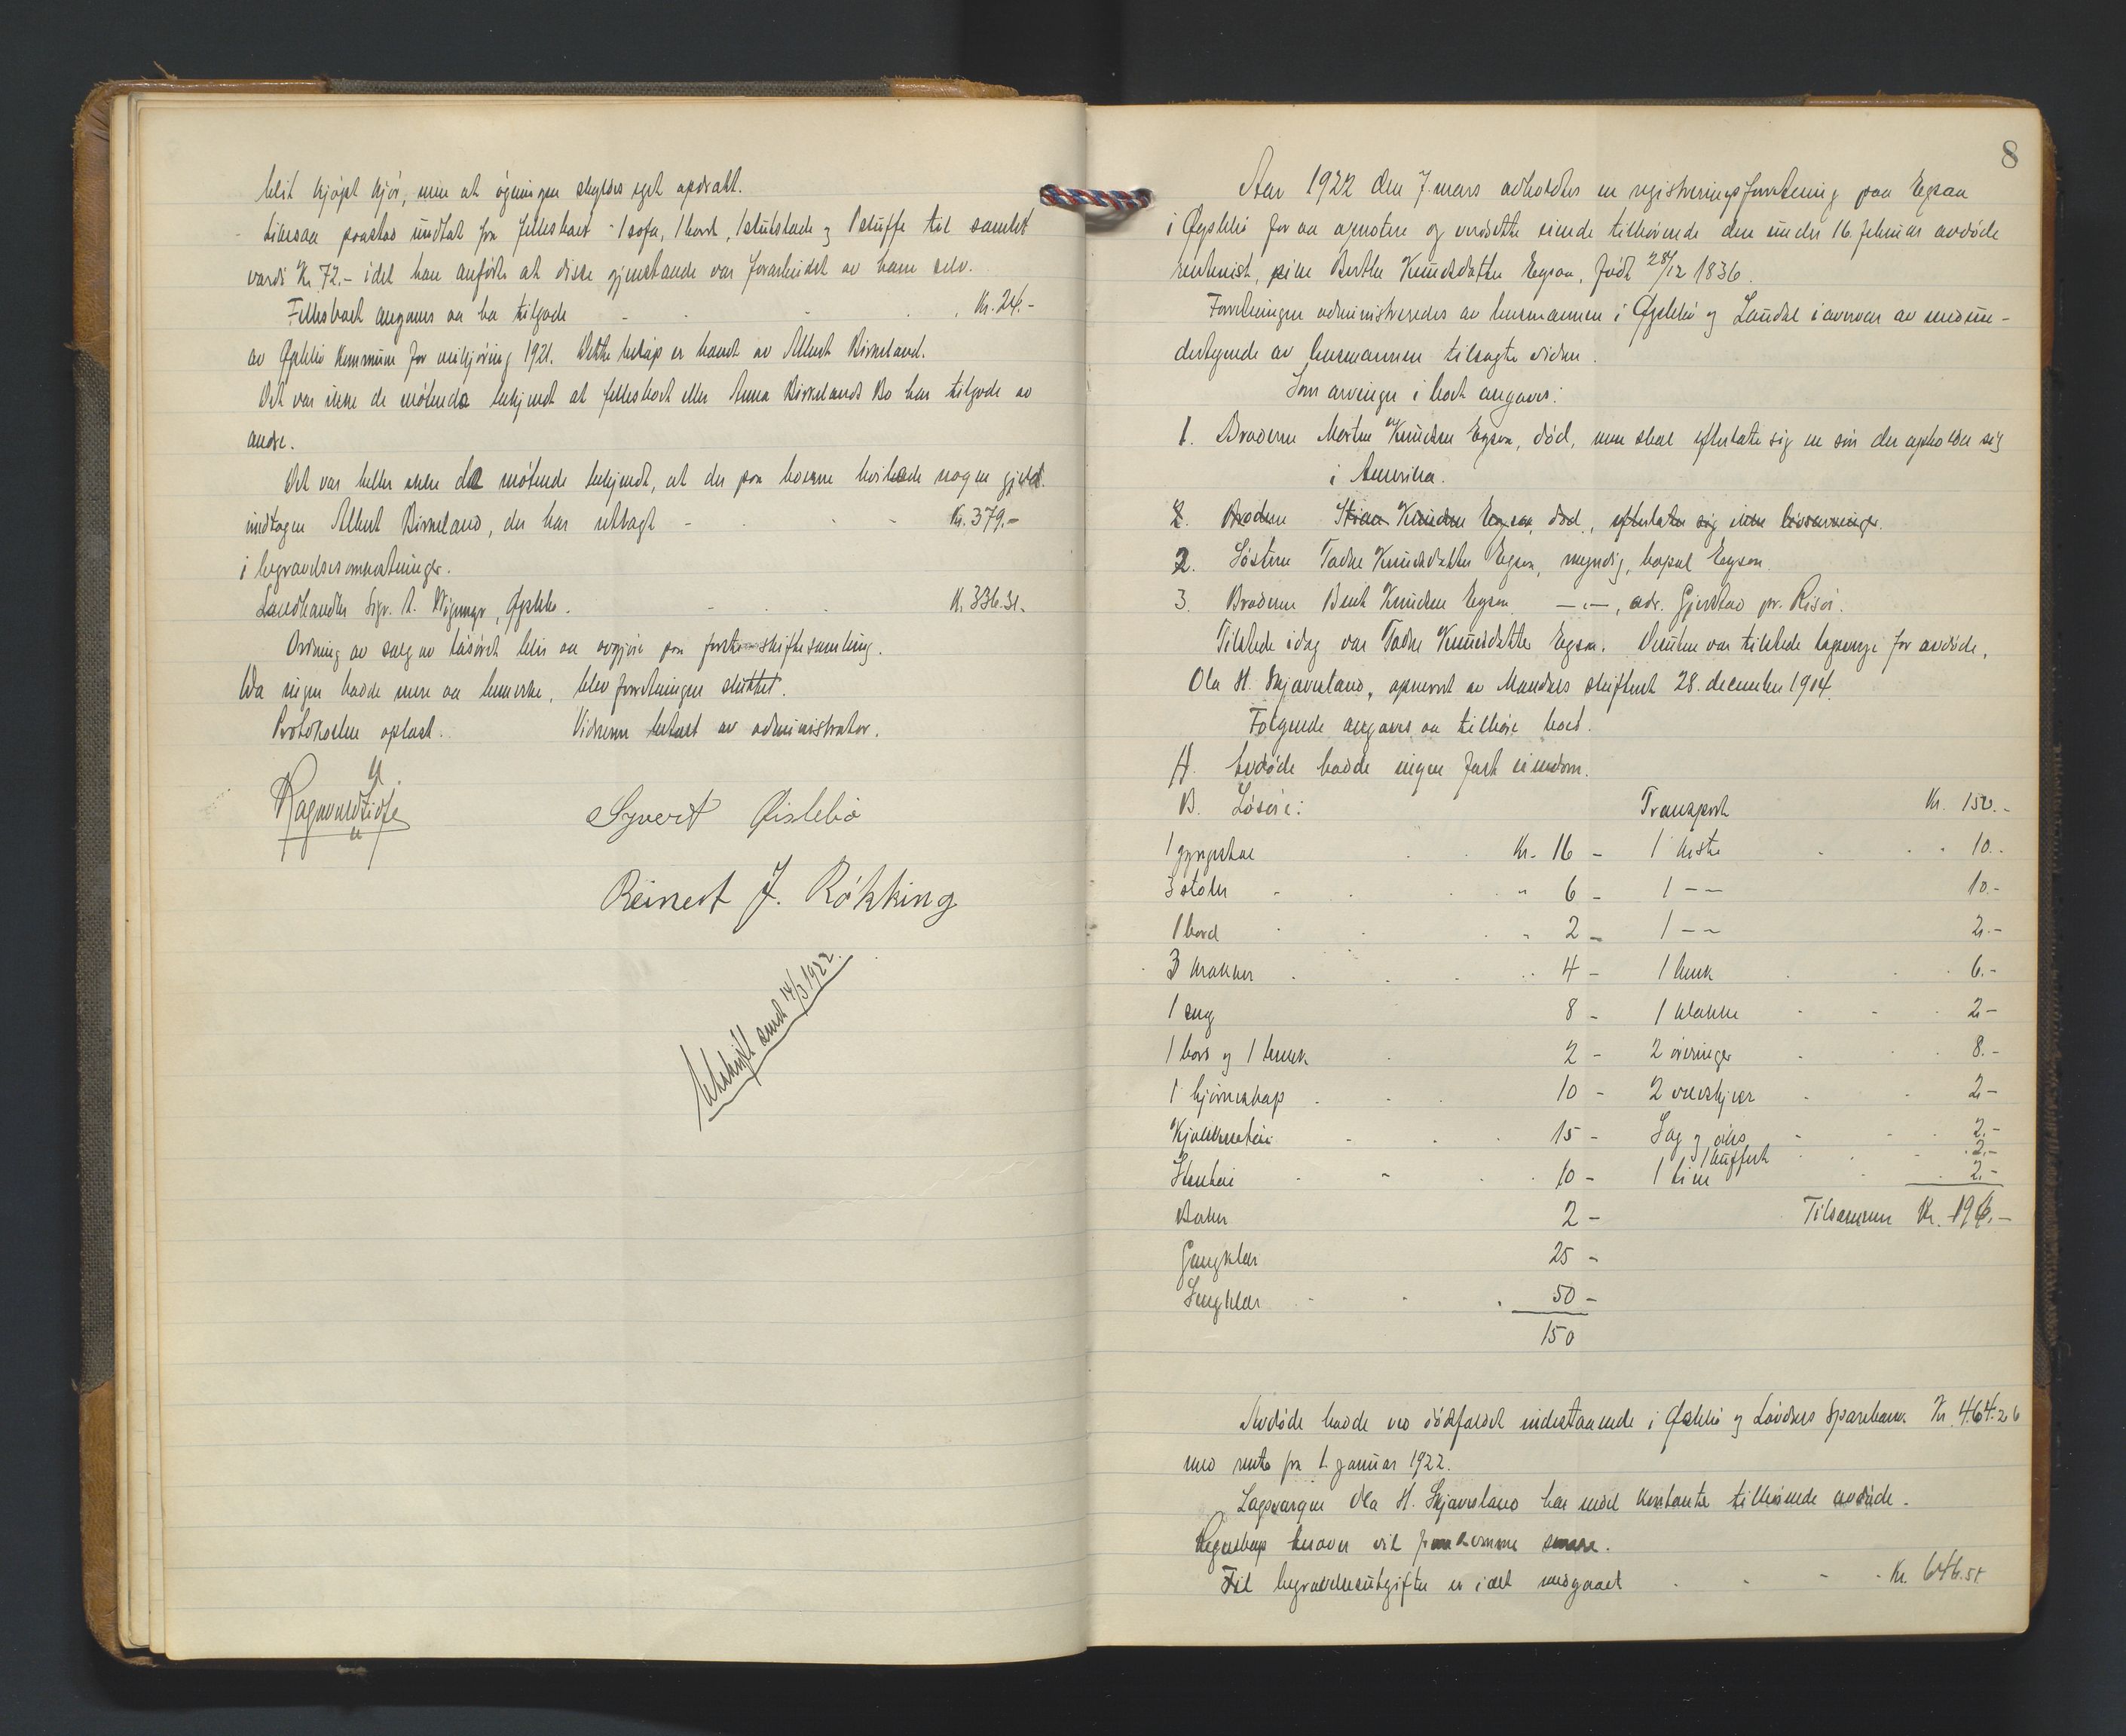 blit kjøpt kjør, men at øgningen skyldes eget opdrætt.
Likesaa paastod undtat fra fellesboet - 1 sofa, 1 bord, 1 stueklokke og 1 skuffe til samlet
værdi Kr. 72.- idet han anførte at disse gjenstande var forarbeidet av ham selv.
Fellesboet angaves aa ha tilgode Kr. 24.-
av Øyslebø kommune for veikjøring 1921. Dette beløp er hævet av Albert Birkeland.
Det var ikke de møtende bekjendt at fellesboet eller Anna Birkelands Bo har tilgode av
andre.
Det var heller ikke de møtende bekjendt, at der paa boerne hvilede nogen gjæld
undtagen Albert Birkeland, der har utlagt Kr. 379,-
i begravelsesomkostninger.
Landhandler Sigv. A. Øyslebø. K. 336.31.
Ordning av salg av løsøret blir aa avgjøre paa første skiftesamling.
Da ingen hadde mere aa bemerke, blev forretningen sluttet.
Protokollen oplæst. Vidnerne betalt av administrator.
Syvert Øislebø
Reinert J. Røkking
Utskrift sendt 14/3 1922.
8
Aar 1922 den 7. mars avholdtes en registreringsforretning paa Egsaa
i Øyslebø for aa opnotere og verdsette eiende tilhørende den under 16. februar avdøde
rentenist, pike Berthe Knudsdatter Egsaa, født 28/12 1836.
Forretningen administreredes av lensmannen i Øyslebø og Laudal i overvær av medun-
dertegnede av lensmannen tilsagte vidner.
Som arvinger i boet angaves:
1. Broderen Morten Knudsen Egsaa, død, men skal efterlate sig en søn der opholder sig
i Amerika.
2. Broderen Knudsen Egsaa, død, efterlater sig ikke livsarvinger.
2. Søsteren Tadne Knudsdatter Egsaa, myndig, bopæl Egsaa.
3. Broderen Bent Knudsen Egsaa —"—, adr. Gjerstad pr. Risør.
Tilstede idag var Tadne Knudsdatter Egsaa. Desuten var tilstede lagverge for avdøde,
Ola H. Skjævesland, opnevnt av Mandals skifterett 28. december 1914.
Følgende angaves aa tilhøre boet.
A. Avdøde hadde ingen fast eiendom.
B. Løsøre: Transport Kr. 150.-
1 gyngestol Kr. 16 - 1 kiste 10.-
3 stoler " 6 - 1 -- 10.-
1 bord " 2 - 1 -- 2.-
3 krakker 4 - 1 benk 6.-
1 seng 8 - 1 klokke 2-
1 bord og 1 benk 2 - 2 øreringer 8.-
1 hjørneskap 10 - 2 2-
Kjøkkentøi 15 - Sag og øks 2.-
1 kuffert 2.-
Stentøi 10 - 1 tine 2.-
Bøker 2 - Tilsammen Kr. 196.-
Gangklær 25 -
Sengklær 50 -
150
Avdøde hadde ved dødsfaldet indestaaende i Øyslebø og Laudals Sparebank Kr. 464.26
med rente fra 1. januar 1922.
Lagvergen Ola H. Skjævesland har endel kontanter tilhørende avdøde.
Regnskap herover vil fremkomme senere.
Til begravelsesutgifter er i alt medgaaet Kr. 646.51